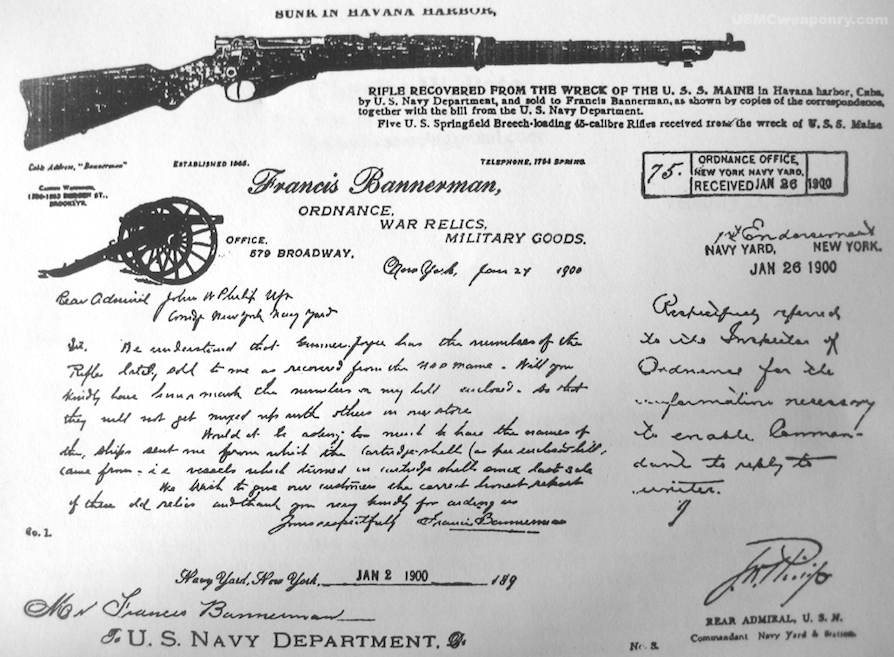 SUNK IN HAVANA HARBOR,
USMCweaponry.com
RIFLE RECOVERED FROM THE WRECK OF THE U. S. S. MAINE in Havana harbor, Cuba,
by U. S. Navy Department, and sold to Francis Bannerman, as shown by copies of the correspondence,
together with the bill from the U. S. Navy Department.
Five U. S. Springfield Breech-loading 45-calibre Rifles received from the wreck of U. S. S. Maine
Cable Address, "Bannerman"
ESTABLISHED 1865.
TELEPHONE, 1784 SPRING.
BROOKLYN.
Francis Bannerman,
ORDNANCE,
WAR RELICS,
MILITARY GOODS.
OFFICE,
579 BROADWAY.
New York, Jan 24 1900
75.
ORDNANCE OFFICE,
NEW YORK NAVY YARD,
RECEIVED JAN 26 1900
1st Endorsement
NAVY YARD, NEW YORK.
JAN 26 1900
Rear Admiral John W Philip USN
Comdg New York Navy Yard
Sir. We understand that Gunner Joyce has the numbers of the
Rifles lately sold to me as recovered from the Maine. Will you
kindly have him mark the numbers on my bill enclosed. So that
they will not get mixed up with others in our store
Would it be asking too much to have the names of
the ships sent me from which the cartridge shells (as per enclosed bill)
came from - i.e vessels which turned in cartridge shells since last sale
We Wish to give our customers the correct honest report
of these old relics and thank you very kindly for aiding us
Yours respectfully Francis Bannerman
No. 1.
Respectfully referred
to the Inspector of
Ordnance for the
information necessary
to enable Comman-
dant to reply to
writer.
J.W. Philip
REAR ADMIRAL, U. S. N.
Commandant Navy Yard & Station
No. 3.
Navy Yard, New York, JAN 2 1900 189
Mr Francis Bannerman
To U. S. NAVY DEPARTMENT, Dr.